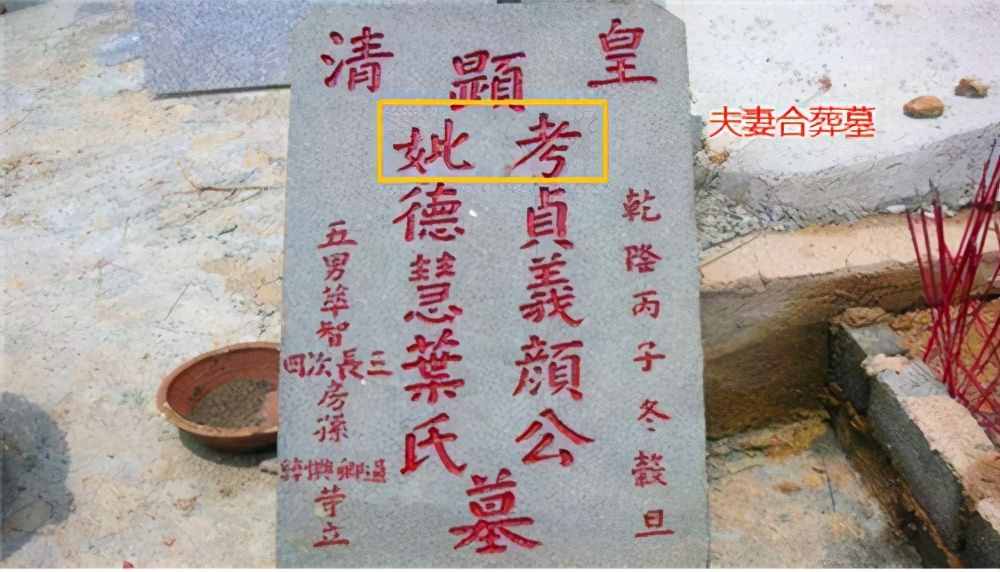 皇清
乾隆丙子冬穀旦
顯
考貞義顏公
妣德慧葉氏
墓
五男智
三長次四
房孫
卿
等立
夫妻合葬墓